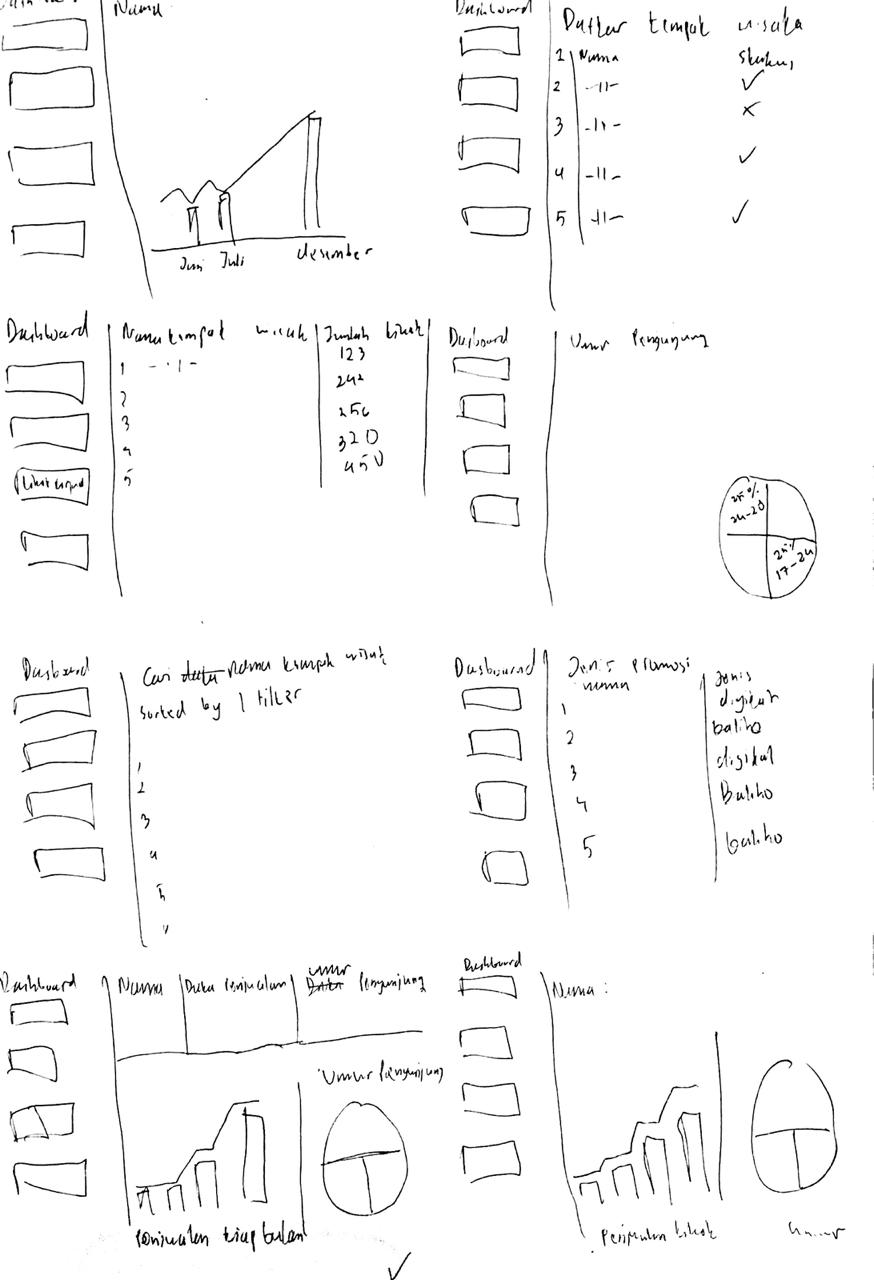 Nama
Juni Juli desember
Dashboard
Daftar tempat wisata
1 Nama Status
2 -11- ✓
3 -11- ×
4 -11- ✓
5 -11- ✓
Dashboard
Nama tempat wisata Jumlah tiket
1 - 11 - 123
2 242
3 256
4 320
5 450
Dasboard
Umur Pengunjung
25%
24-28
25%
17-24
Dasboard
Cari data Nama tempat wisata
Sorted by | filter
1
2
3
4
5
Dasboard
Jenis promosi
nama jenis
1 digital
2 baliho
3 digital
4 Baliho
5 baliho
Dashboard
Nama Data Penjualan umur
Data Pengunjung
Umur Pengunjung
Penjualan tiap bulan
✓
Dashboard
Nama :
Penjualan tiket
Umur